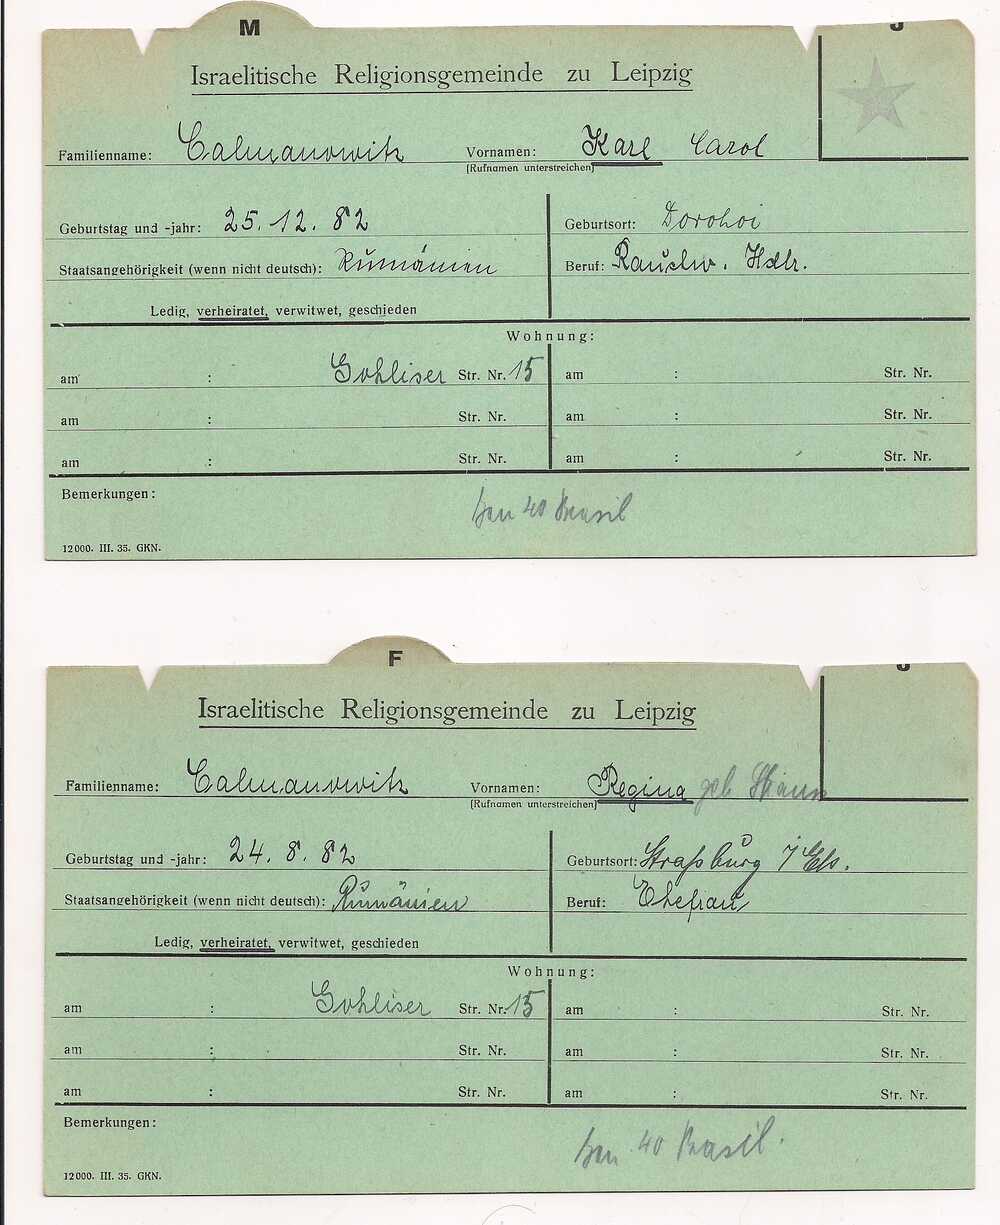 M
J
Israelitische Religionsgemeinde zu Leipzig
Familienname: Calmanowitz Vornamen: Karl Carol
(Rufnamen unterstreichen)
Geburtstag und -jahr: 25. 12. 82 Geburtsort: Dorohoi
Staatsangehörigkeit (wenn nicht deutsch): Rumänien Beruf: Rauchw. Hdlr.
Ledig, verheiratet, verwitwet, geschieden
Wohnung:
am : Gohliser Str. Nr. 15 am : Str. Nr.
am : Str. Nr. am : Str. Nr.
am : Str. Nr. am : Str. Nr.
Bemerkungen:
40 Brasil
12000. III. 35. GKN.
F
J
Israelitische Religionsgemeinde zu Leipzig
Familienname: Calmanowitz Vornamen: Regina geb
(Rufnamen unterstreichen)
Geburtstag und -jahr: 24. 8. 82 Geburtsort: Straßburg i/Els.
Staatsangehörigkeit (wenn nicht deutsch): Rumänien Beruf: Ehefrau
Ledig, verheiratet, verwitwet, geschieden
Wohnung:
am : Gohliser Str. Nr. 15 am : Str. Nr.
am : Str. Nr. am : Str. Nr.
am : Str. Nr. am : Str. Nr.
Bemerkungen:
40 Brasil.
12000. III. 35. GKN.